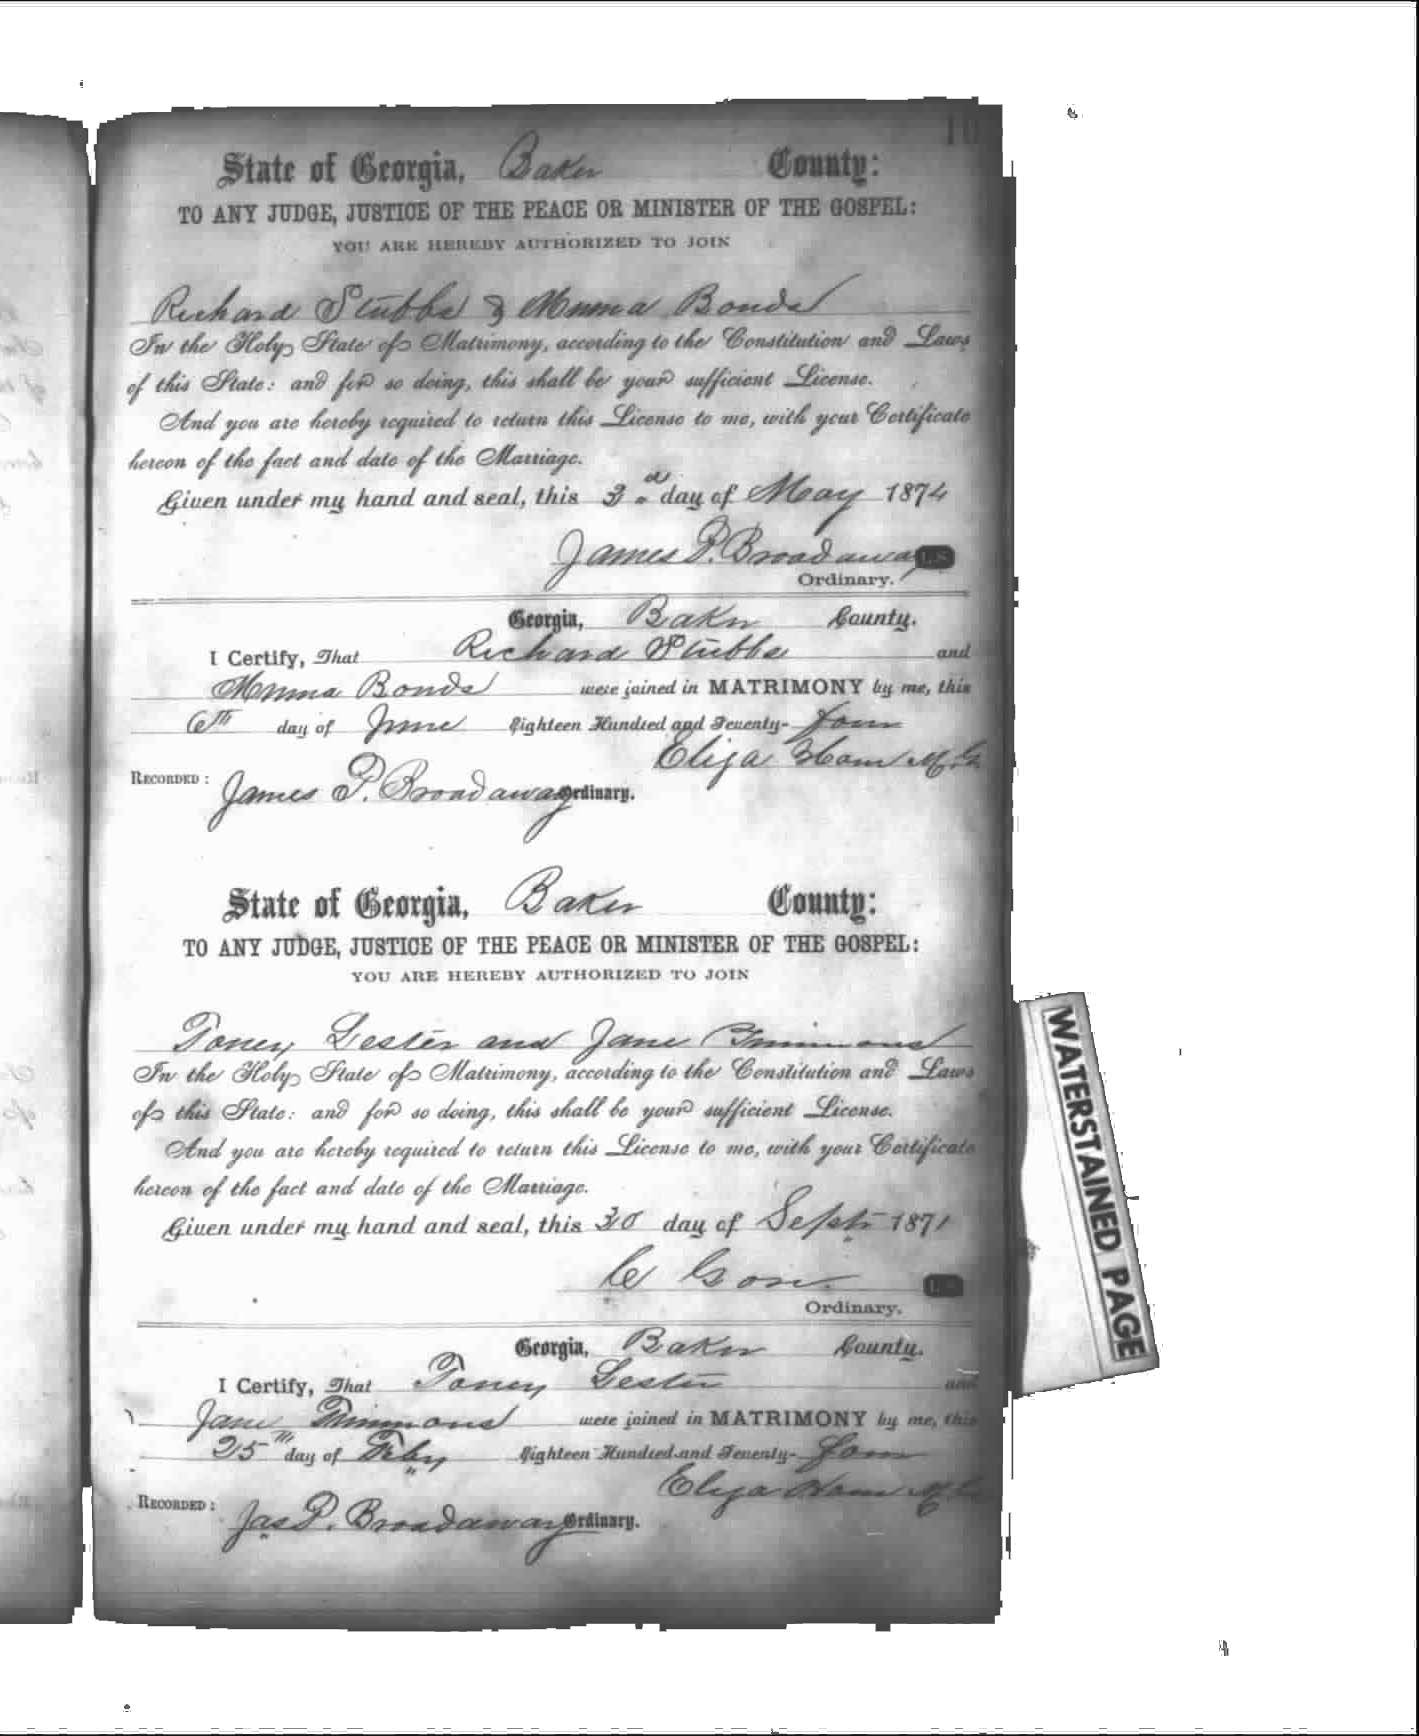 State of Georgia, Baker County:
TO ANY JUDGE, JUSTICE OF THE PEACE OR MINISTER OF THE GOSPEL:
YOU ARE HEREBY AUTHORIZED TO JOIN
Richard Stubbs & Bonds
In the Holy State of Matrimony, according to the Constitution and Laws
of this State: and for so doing, this shall be your sufficient License.
And you are hereby required to return this License to me, with your Certificate
hereon of the fact and date of the Marriage.
Given under my hand and seal, this 3.d day of May 1874
James P. Broadaway L.S.
Ordinary.
Georgia, Baker County.
I Certify, That Richard Stubbs and
Bonds were joined in MATRIMONY by me, this
6th day of June Eighteen Hundred and Seventy-four
Eliza Ham M.G.
RECORDED: James P. Broadaway Ordinary.
State of Georgia, Baker County:
TO ANY JUDGE, JUSTICE OF THE PEACE OR MINISTER OF THE GOSPEL:
YOU ARE HEREBY AUTHORIZED TO JOIN
Toney Lester and Jane Timmons
In the Holy State of Matrimony, according to the Constitution and Laws
of this State: and for so doing, this shall be your sufficient License.
And you are hereby required to return this License to me, with your Certificate
hereon of the fact and date of the Marriage.
Given under my hand and seal, this 30 day of Sept 1871
L.S.
Ordinary.
Georgia, Baker County.
I Certify, That Toney Lester and
Jane Timmons were joined in MATRIMONY by me, this
25th day of Feby Eighteen Hundred and Seventy-four
Eliza Ham M.G.
RECORDED: Jas P. Broadaway Ordinary.
WATERSTAINED PAGE